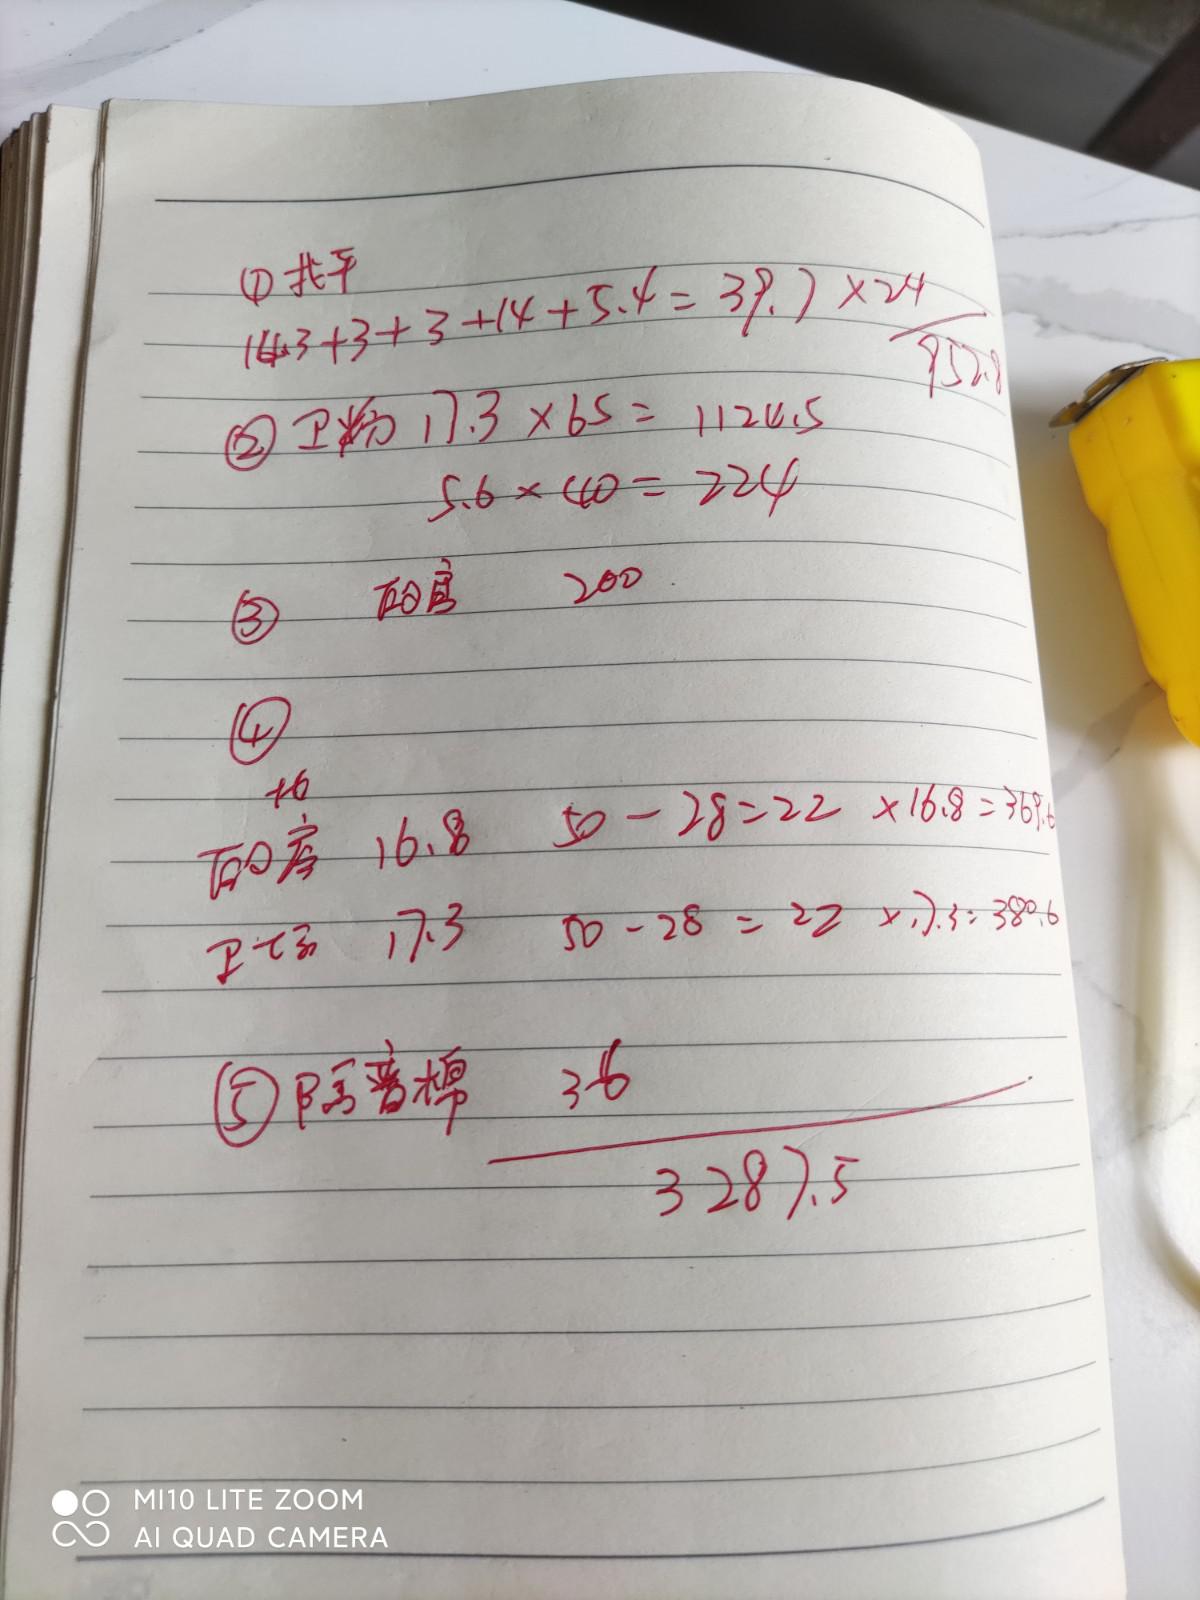 ① 找平
14.3+3+3+14+5.4=39.7×24
952.8
② 卫粉 17.3×65=1124.5
5.6×40=224
③ 200
④
16.8 50-28=22 ×16.8=369.6
卫 17.3 50-28=22 ×17.3=380.6
⑤ 隔音棉 36
3287.5
MI10 LITE ZOOM
AI QUAD CAMERA